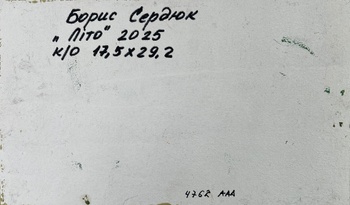 Борис Сердюк
„Літо" 2025
к/о 17,5х29,2
4762 ААА